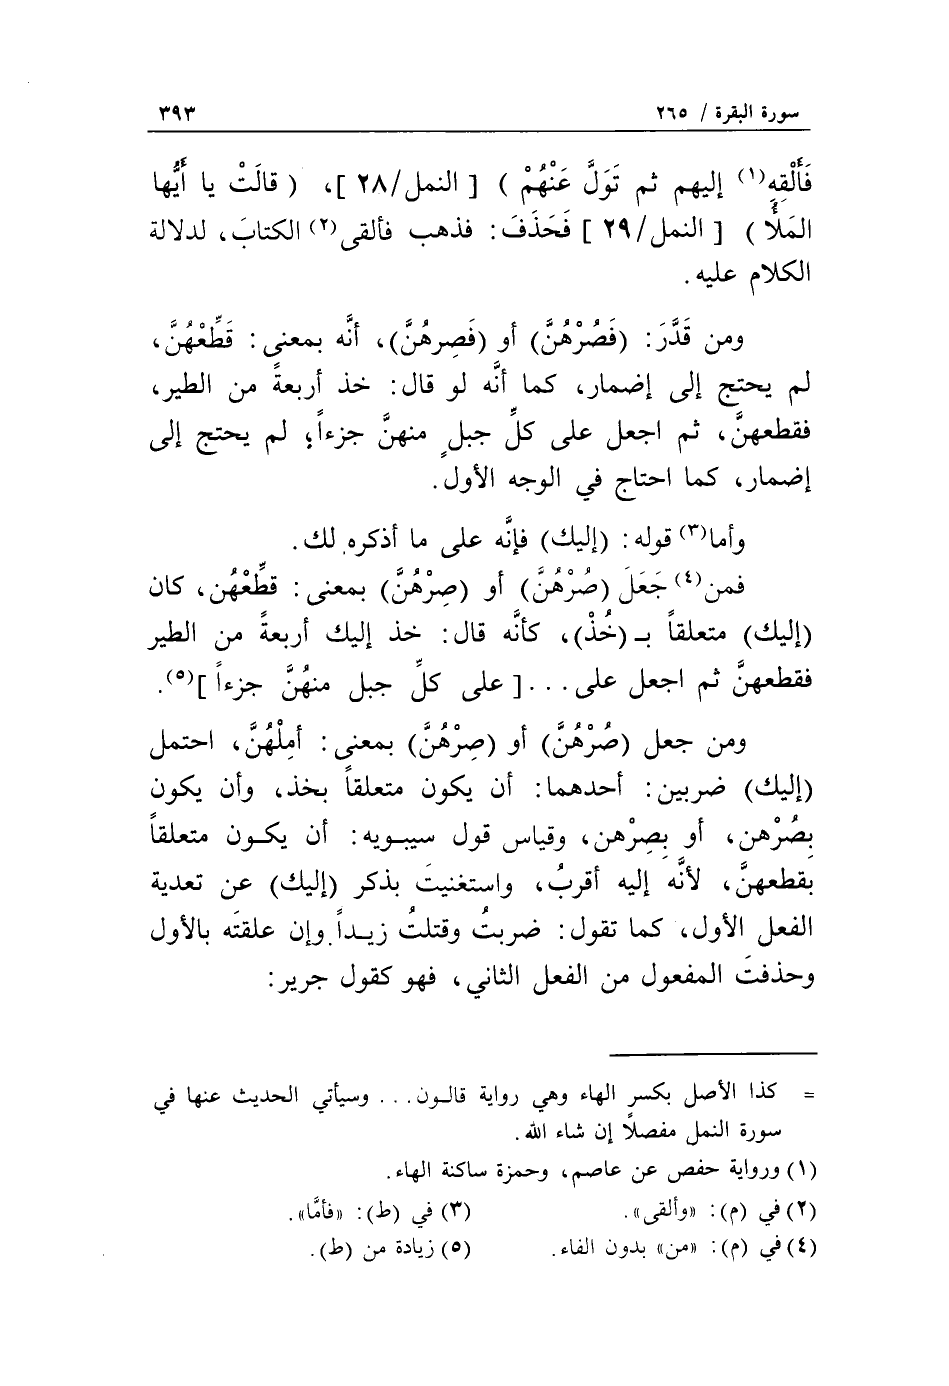 سورة البقرة / ٢٦٥ ٣٩٣
فَأَلْقِهِ(١) إليهم ثم تَوَلَّ عَنْهُمْ ) [ النمل/٢٨ ]، ( قالَتْ يا أيُّها
المَلأُ ) [ النمل/٢٩ ] فَحَذَفَ: فذهب فألقى(٢) الكتابَ، لدلالة
الكلام عليه.
ومن قَدَّرَ: (فَصُرْهُنَّ) أو (فَصِرهُنَّ)، أنَّه بمعنى: قَطِّعْهُنَّ،
لم يحتج إلى إضمار، كما أنَّه لو قال: خذ أربعةً من الطير،
فقطعهنَّ، ثم اجعل على كلِّ جبلٍ منهنَّ جزءاً؛ لم يحتج إلى
إضمار، كما احتاج في الوجه الأول.
وأما(٣) قوله: (إليك) فإنَّه على ما أذكره لك.
فمن(٤) جَعَلَ (صُرْهُنَّ) أو (صِرْهُنَّ) بمعنى: قطِّعْهُن، كان
(إليك) متعلقاً بـ (خُذْ)، كأنَّه قال: خذ إليك أربعةً من الطير
فقطعهنَّ ثم اجعل على... [ على كلِّ جبل منهُنَّ جزءاً ](٥).
ومن جعل (صُرْهُنَّ) أو (صِرْهُنَّ) بمعنى: أمِلْهُنَّ، احتمل
(إليك) ضربين: أحدهما: أن يكون متعلقاً بخذ، وأن يكون
بصُرْهن، أو بصِرْهن، وقياس قول سيبويه: أن يكون متعلقاً
بقطعهنَّ، لأنَّه إليه أقربُ، واستغنيتَ بذكر (إليك) عن تعدية
الفعل الأول، كما تقول: ضربتُ وقتلتُ زيداً وإن علقتَه بالأول
وحذفتَ المفعول من الفعل الثاني، فهو كقول جرير:
= كذا الأصل بكسر الهاء وهي رواية قالون... وسيأتي الحديث عنها في
سورة النمل مفصلًا إن شاء الله.
(١) ورواية حفص عن عاصم، وحمزة ساكنة الهاء.
(٢) في (م): «وألقى». (٣) في (ط): «فأمَّا».
(٤) في (م): «من» بدون الفاء. (٥) زيادة من (ط).